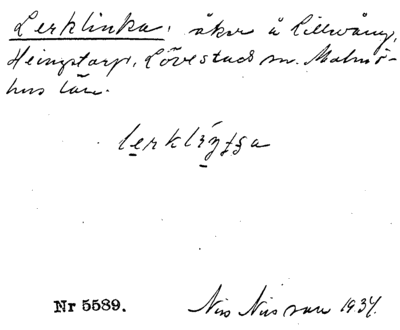 Lerklinka, åker å Lillevång,
Heingetorp, Lövestads sn. Malmö-
hus län.
Nr 5589.
Nils Nilsson 1934.